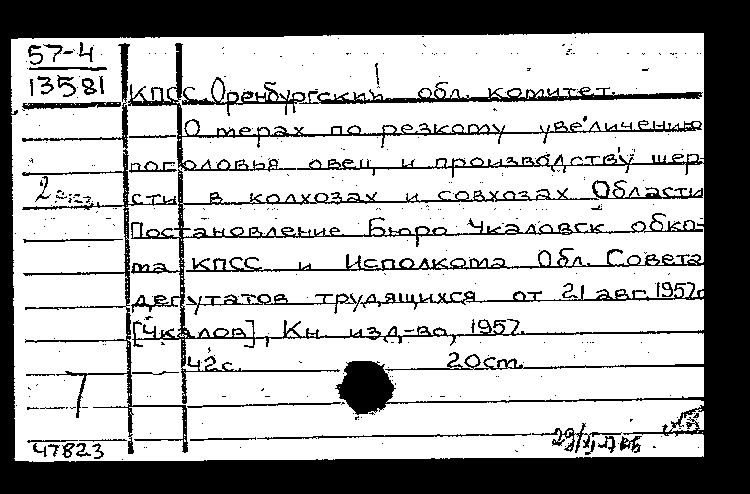 57-4
13581
КПСС. Оренбургский обл. комитет.
О мерах по резкому увеличению
поголовья овец и производству шер-
сти в колхозах и совхозах Области
Постановление Бюро Чкаловск обко-
ма КПСС и Исполкома Обл. Совета
депутатов трудящихся от 21 авг. 1957г
[Чкалов], Кн. изд-во, 1957.
42с. 20см.
2 экз.
47823